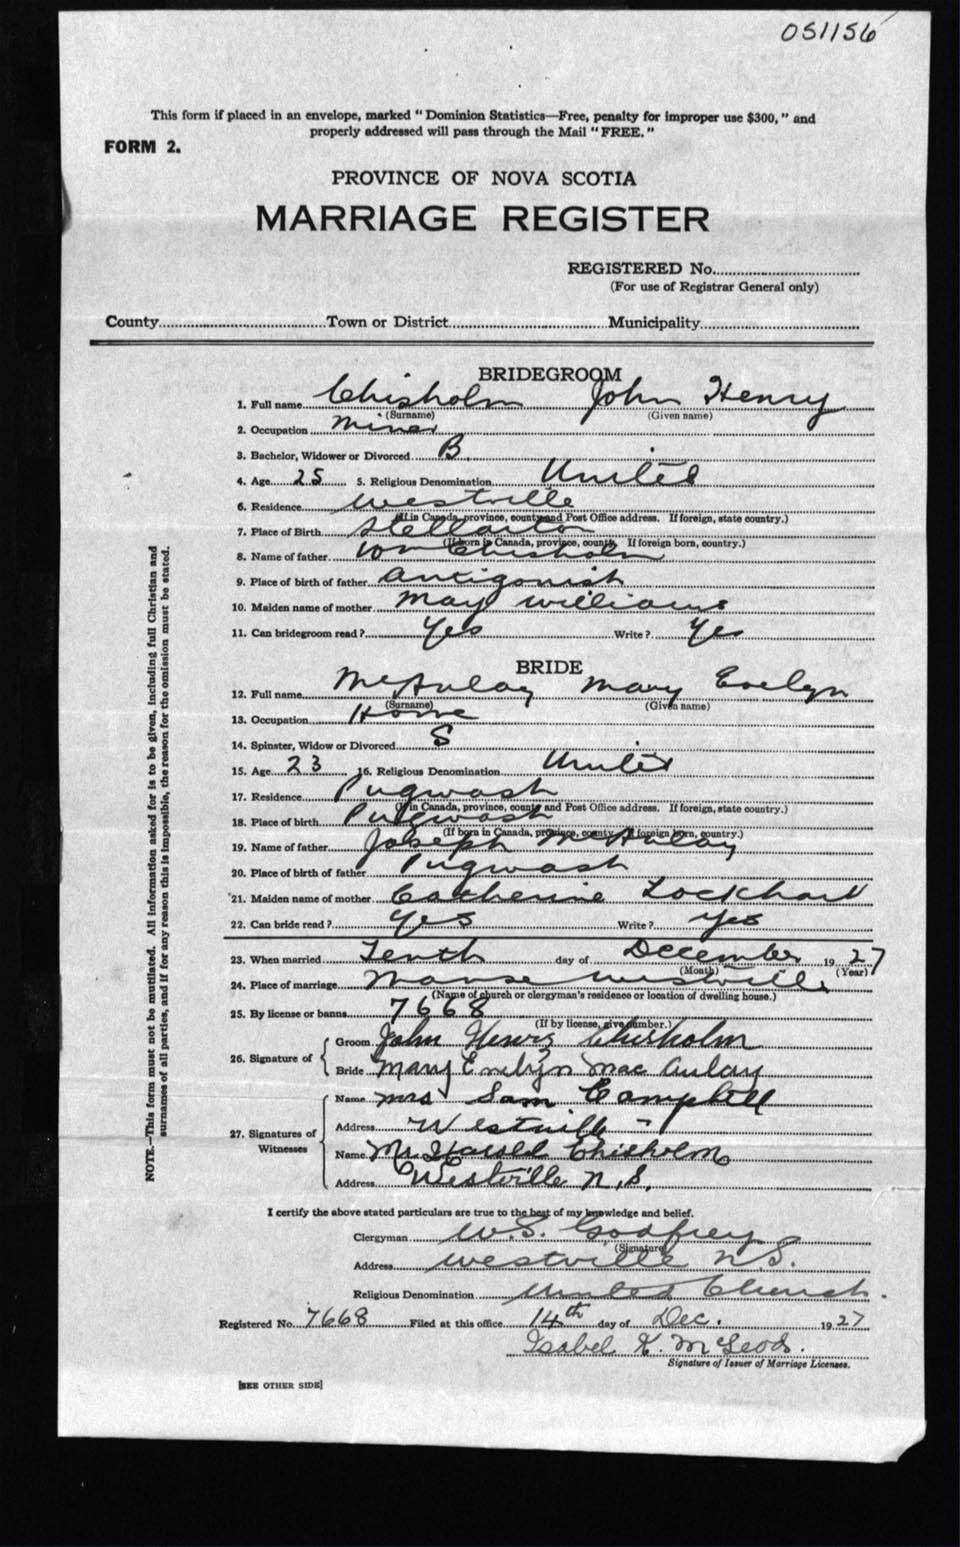 051156
This form if placed in an envelope, marked "Dominion Statistics—Free, penalty for improper use $300," and
properly addressed will pass through the Mail "FREE."
FORM 2.
PROVINCE OF NOVA SCOTIA
MARRIAGE REGISTER
REGISTERED No.
(For use of Registrar General only)
County Town or District Municipality
BRIDEGROOM
1. Full name Chisholm John Henry
(Surname) (Given name)
2. Occupation Miner
3. Bachelor, Widower or Divorced B.
4. Age 25 5. Religious Denomination United
6. Residence Westville
(If in Canada, province, county and Post Office address. If foreign, state country.)
7. Place of Birth Stellarton
(If born in Canada, province, county. If foreign born, country.)
8. Name of father Wm Chisholm
9. Place of birth of father Antigonish
10. Maiden name of mother May Williams
11. Can bridegroom read? Yes Write? Yes
BRIDE
12. Full name McAulay Mary Evelyn
(Surname) (Given name)
13. Occupation Home
14. Spinster, Widow or Divorced S
15. Age 23 16. Religious Denomination United
17. Residence Pugwash
(If in Canada, province, county and Post Office address. If foreign, state country.)
18. Place of birth Pugwash
(If born in Canada, province, county. If foreign born, country.)
19. Name of father Joseph McAulay
20. Place of birth of father Pugwash
21. Maiden name of mother Catherine Lockhart
22. Can bride read? Yes Write? Yes
23. When married Tenth day of December 1927
(Month) (Year)
24. Place of marriage Manse Westville
(Name of church or clergyman's residence or location of dwelling house.)
25. By license or banns 7668
(If by license, give number.)
26. Signature of Groom John Henry Chisholm
Bride Mary Evelyn MacAulay
27. Signatures of Witnesses Name Mrs Sam Campbell
Address Westville
Name Mr. Harold Chisholm
Address Westville N.S.
I certify the above stated particulars are true to the best of my knowledge and belief.
Clergyman W.S. Godfrey
(Signature)
Address Westville N.S.
Religious Denomination United Church.
Registered No. 7668 Filed at this office 14th day of Dec. 1927
Isabel K. McLeod.
Signature of Issuer of Marriage Licenses.
[SEE OTHER SIDE]
NOTE.—This form must not be mutilated. All information asked for is to be given, including full Christian and
surnames of all parties, and if for any reason this is impossible, the reason for the omission must be stated.